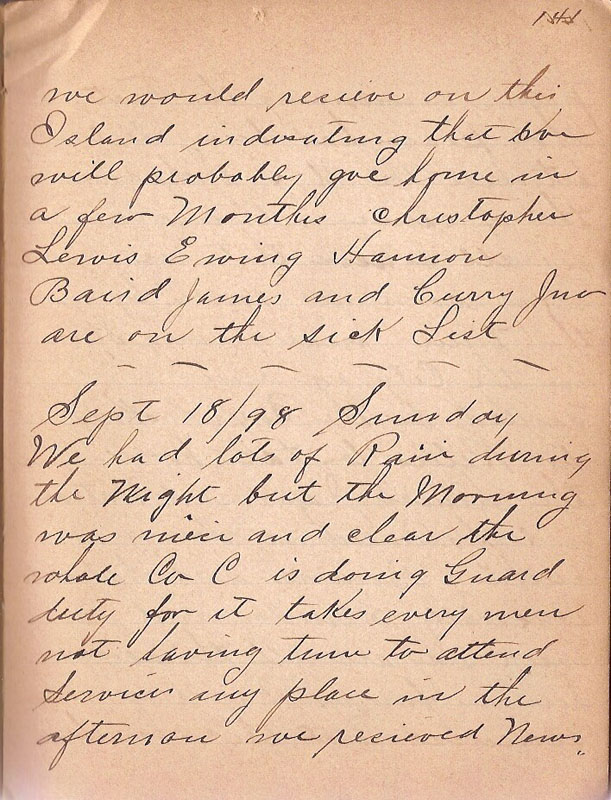 141
we would resieve on this
Island indicating that we
will probably goe home in
a few Months Christopher
Lewis Ewing Hannon
Baird James and Curry Jno
are on the sick List
Sept 18/98 Sunday
We had lots of Rain during
the Night but the Morning
was nice and clear the
whole Co C is doing Guard
duty for it takes every men
not having time to attend
Services any place in the
afternoon we resieved News